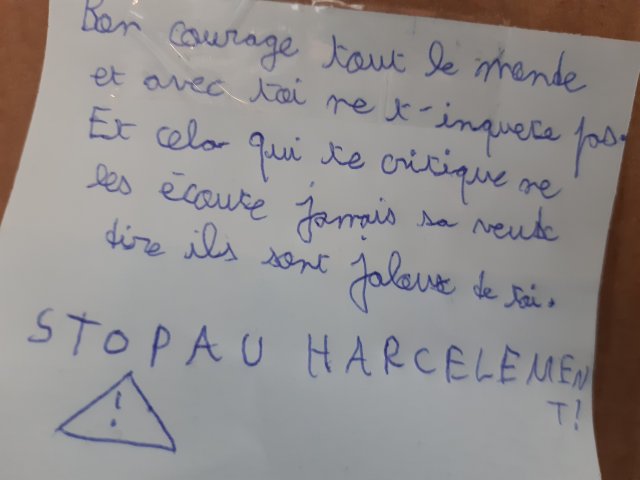 Bon courage tout le monde
et avec toi ne t-inquete pas.
Et cela qui te critique ne
les écoute jamais sa veut
dire ils sont jaloux de toi.
STOP AU HARCELEMEN
T!
!